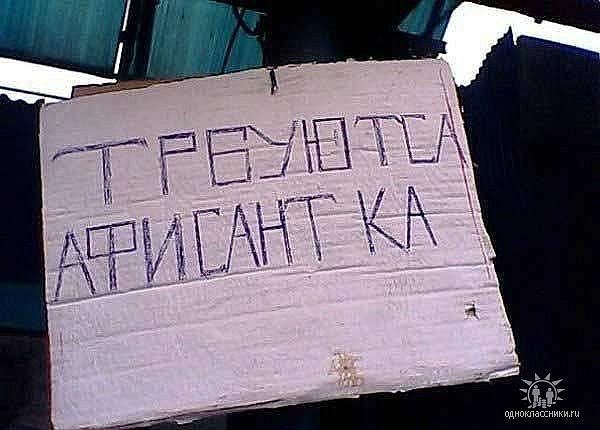 ТРЕБУЮТСА
АФИСАНТ КА
одноклассники.ru